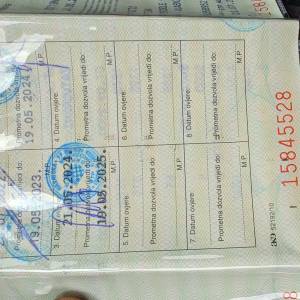 19.05.2023.
M.P.
Prometna dozvola vrijedi do:
19.05.2024
M.P.
3. Datum ovjere:
21.05.2024.
Prometna dozvola vrijedi do:
19.05.2025.
M.P.
Datum ovjere:
Prometna dozvola vrijedi do:
M.P.
5. Datum ovjere:
Prometna dozvola vrijedi do:
M.P.
6. Datum ovjere:
Prometna dozvola vrijedi do:
M.P.
7. Datum ovjere:
Prometna dozvola vrijedi do:
M.P.
8. Datum ovjere:
Prometna dozvola vrijedi do:
M.P.
15845528